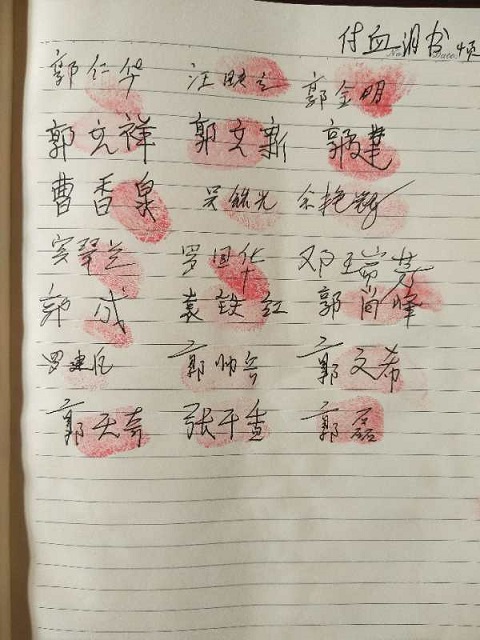 付血泪书 4页
郭仁华 汪映立 郭金明
郭立祥 郭文新 郭建
曹香泉 吴铭光 余艳
琴兰 罗国华 邓玉芳
郭成 袁铁红 郭尚峰
罗建民 郭帅兵 郭文希
郭天奇 张干香 郭磊